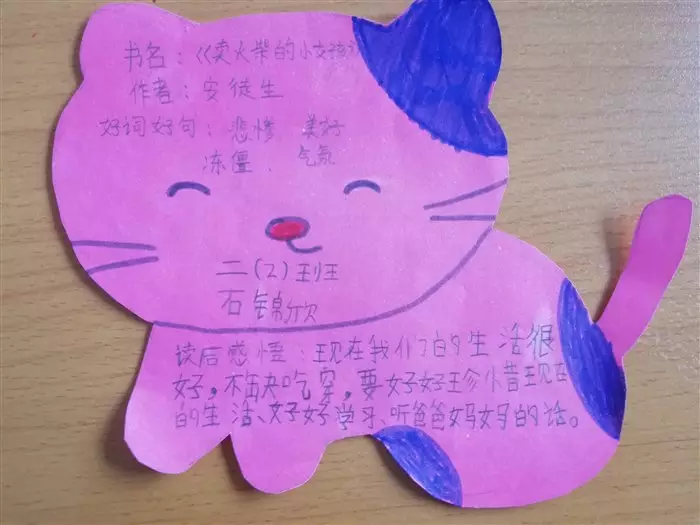 书名：《卖火柴的小女孩》
作者：安徒生
好词好句：悲惨、美好
冻僵、气氛
二（2）班
石锦欣
读后感悟：现在我们的生活很
好，不缺吃穿，要好好珍惜现在
的生活、好好学习、听爸爸妈妈的话。